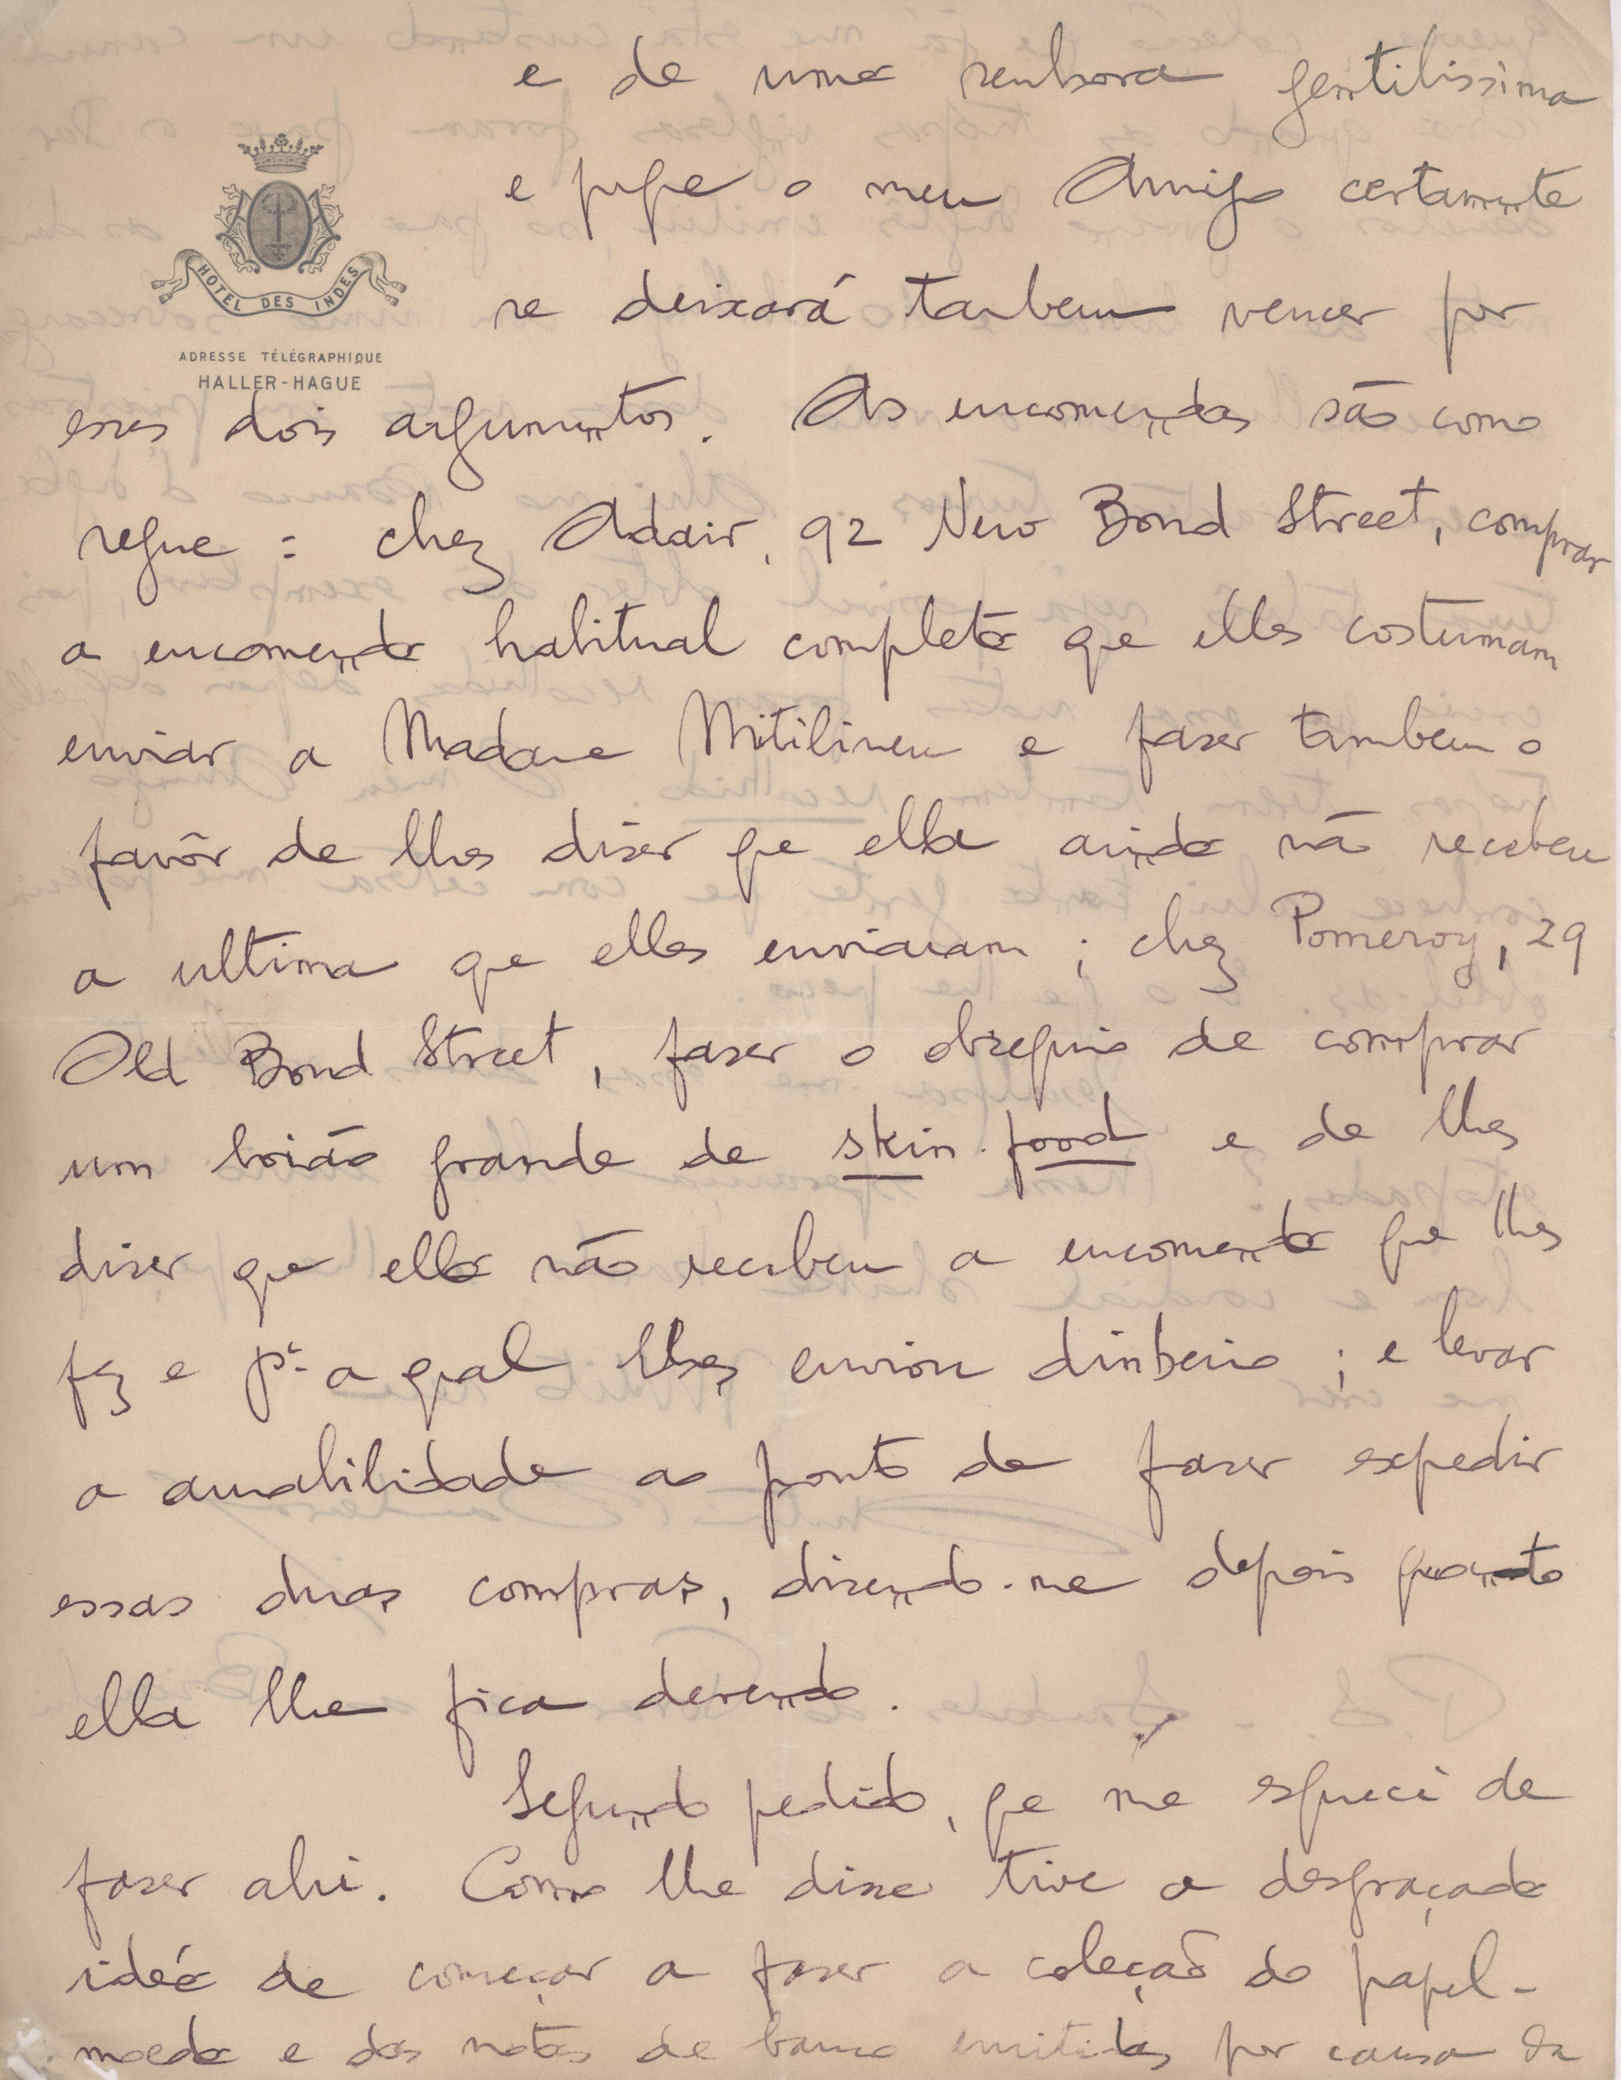 e de uma senhora gentilissima
HOTEL DES INDES
e  o meu Amigo certamente
se deixará tambem vencer por
ADRESSE TÉLÉGRAPHIQUE
HALLER-HAGUE
esses dois argumentos. As encomendas são como
segue : chez Adair, 92 New Bond Street, comprar
a encomenda habitual completa que elles costumam
enviar a Madame Mitilineu e faser tambem o
favôr de lhes diser que ella ainda não recebeu
a ultima que elles enviaram ; chez Pomeroy, 29
Old Bond Street, faser o obsequio de comprar
um boião grande de skin-food e de lhes
diser que ella não recebeu a encomenda que lhes
fez e pª a qual lhes enviou dinheiro ; e levar
a amabilidade ao ponto de faser expedir
essas duas compras, disendo-me depois quanto
ella lhe fica devendo.
Segundo pedido, que me esqueci de
faser ahi. Como lhe disse tive a desgraçada
idéa de começar a faser a coleção do papel-
moeda e das notas de banco emitidas por causa da